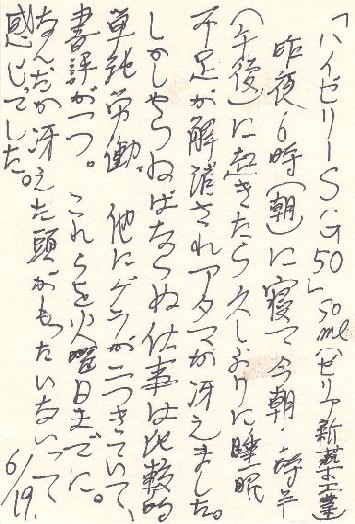 「ハイゼリーS・G50」50mlハゼリア新薬工業
昨夜6時(朝)に寝て今朝1時半
(午後)に起きたら久しぶりに睡眠
不足が解消されアタマが冴えました。
しかしやらねばならぬ仕事は比較的
単純労働。他にゲラが二つきていて、
書評が一つ。これらを火曜日までに。
なんだか冴えた頭がもったいないって
感じでした。
6/19.